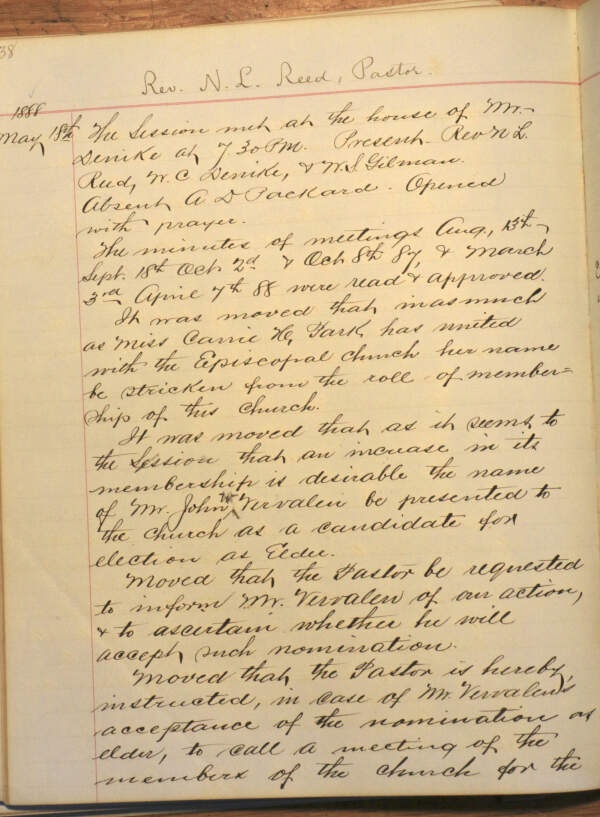 38
Rev. N. L. Reed, Pastor.
1888
May 18th The Session met at the house of Mr.
Denike at 7 30 PM. Present Rev N L
Reed, W. C Denike, & W. S. Gilman.
Absent A D Packard. Opened
with prayer.
The minutes of meetings Aug, 13th
Sept. 18th Oct 2nd & Oct 8th 87, & March
3rd April 7th 88 were read & approved.
It was moved that inasmuch
as Miss Carrie H, Park, has united
with the Episcopal church her name
be stricken from the roll of member=
ship of this church.
It was moved that as it seems to
the Session that an increase in its
membership is desirable the name
of Mr. John W Vervalen be presented to
the church as a candidate for
election as Elder.
Moved that the Pastor be requested
to inform Mr. Vervalen of our action,
& to ascertain whether he will
accept such nomination.
Moved that the Pastor is hereby
instructed, in case of Mr Vervalen's
acceptance of the nomination as
elder, to call a meeting of the
members of the church for the